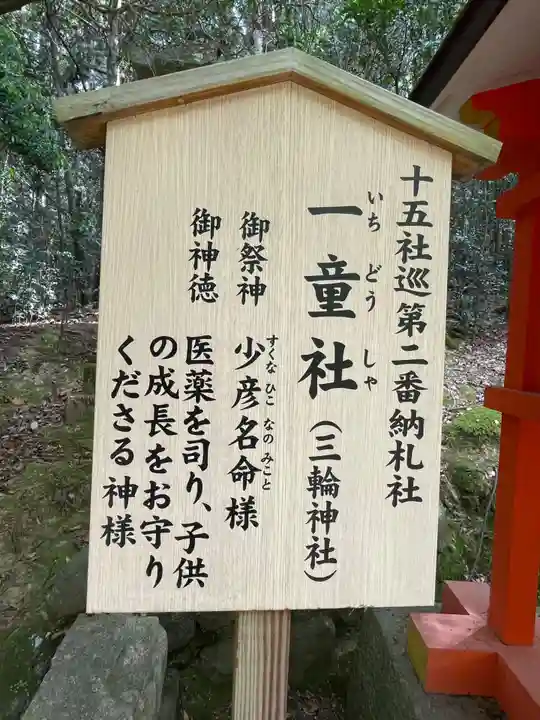 十五社巡第二番納札社
いちどうしゃ
一童社(三輪神社)
すくなひこなのみこと
御祭神 少彦名命様
御神徳 医薬を司り、子供
の成長をお守り
くださる神様